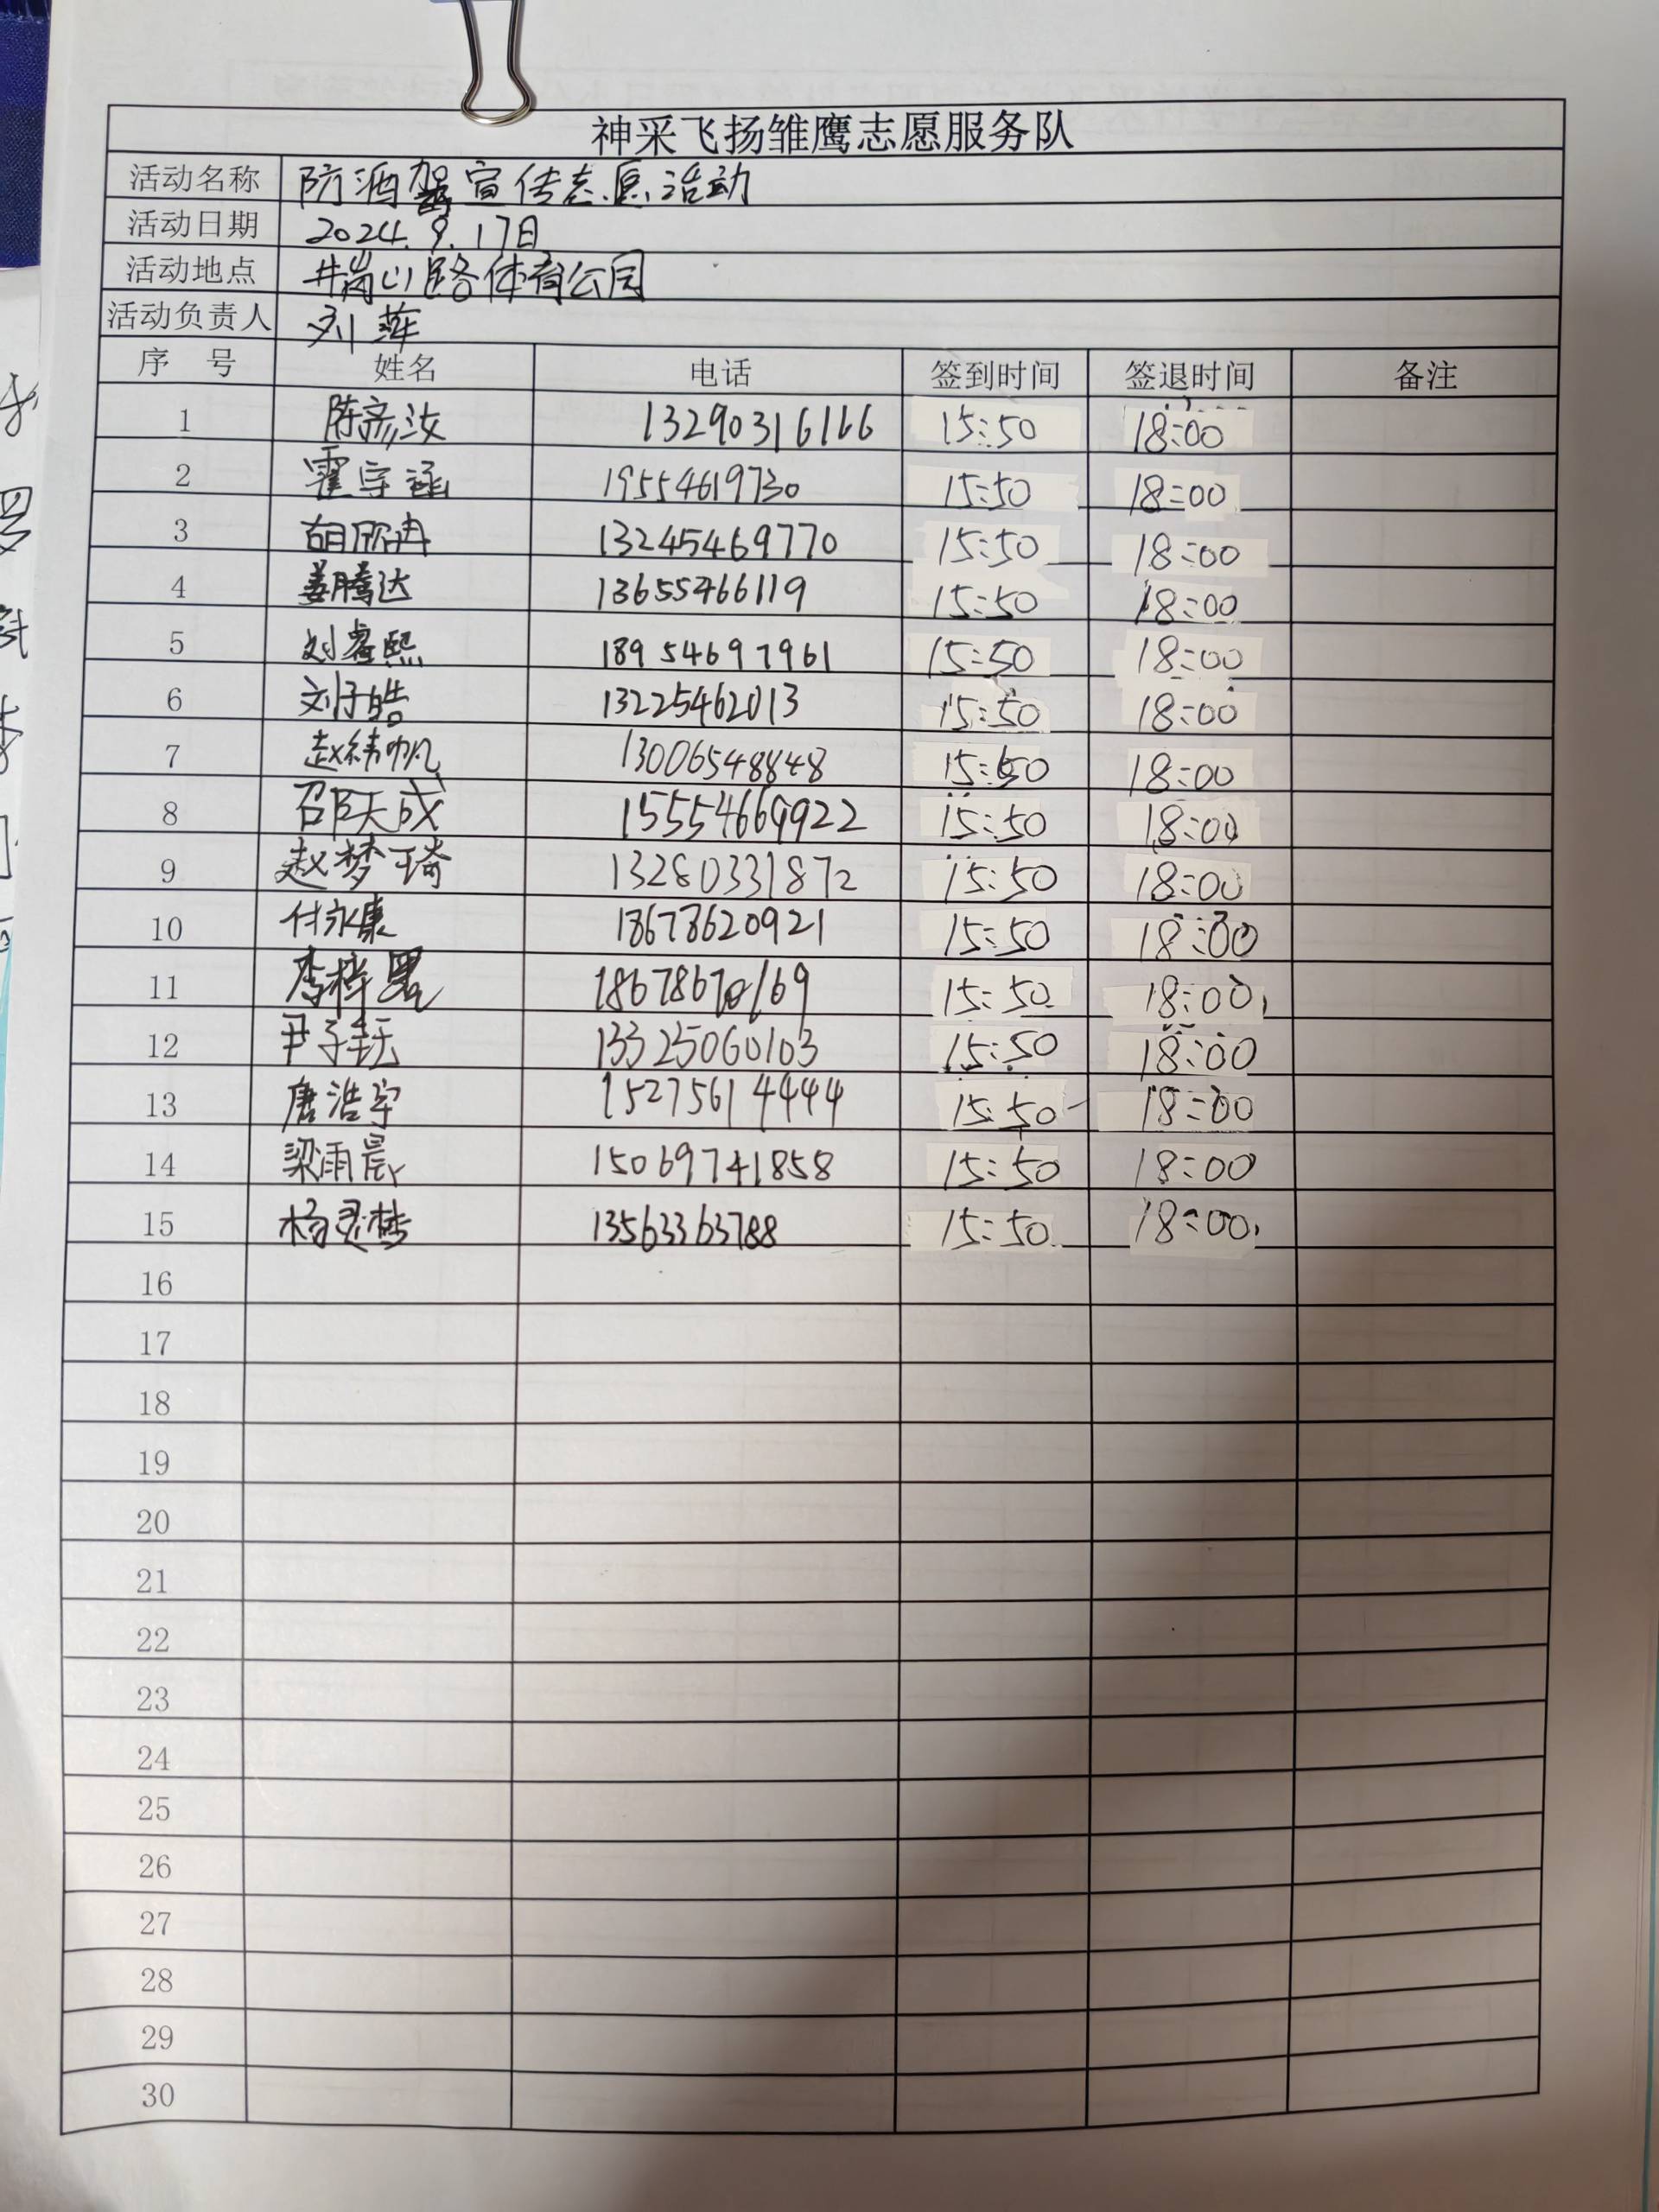 神采飞扬雏鹰志愿服务队
活动名称 防酒驾宣传志愿活动
活动日期 2024.9.17日
活动地点 井岗山路体育公园
活动负责人 刘萍
序 号 姓名 电话 签到时间 签退时间 备注
1 陈彦汝 13290316166 15:50 18:00
2 霍宇涵 19554619730 15:50 18:00
3 胡欣冉 13245469770 15:50 18:00
4 姜腾达 13655466119 15:50 18:00
5 刘睿熙 18954697961 15:50 18:00
6 刘子皓 13225462013 15:50 18:00
7 赵纬帆 13006548848 15:50 18:00
8 邵天成 15554669922 15:50 18:00
9 赵梦琦 13280331872 15:50 18:00
10 付永康 18678620921 15:50 18:00
11 李梓 15:50 18:00
12 尹子 13325060103 15:50 18:00
13 唐浩宇 15275614444 15:50 18:00
14 梁雨晨 15069741858 15:50 18:00
15 杨灵梦 13563363788 15:50 18:00
16
17
18
19
20
21
22
23
24
25
26
27
28
29
30